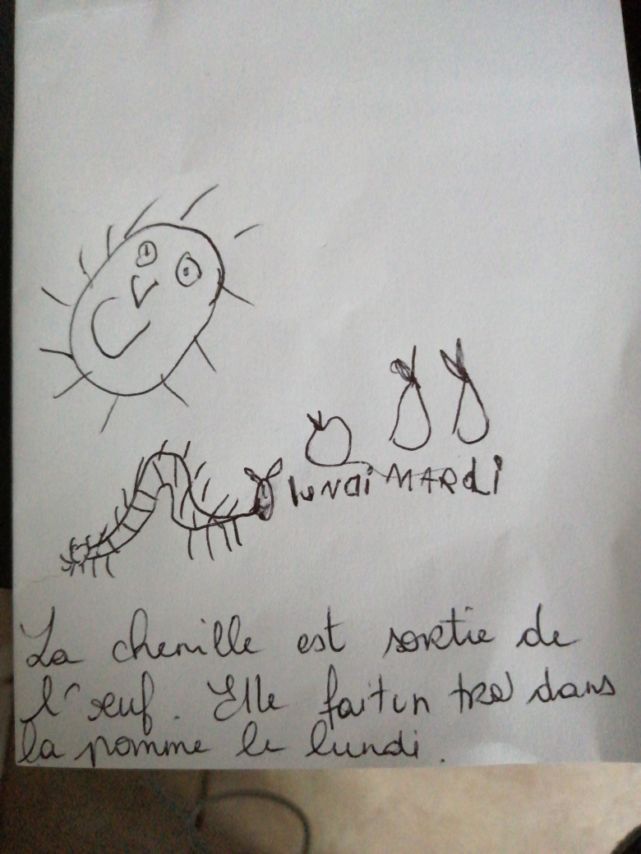 lunai MARdi
La chenille est sortie de
l'œuf. Elle fait un tro dans
la pomme le lundi.